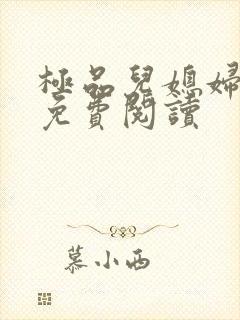 極品兒媳婦
免費閱讀
慕小西